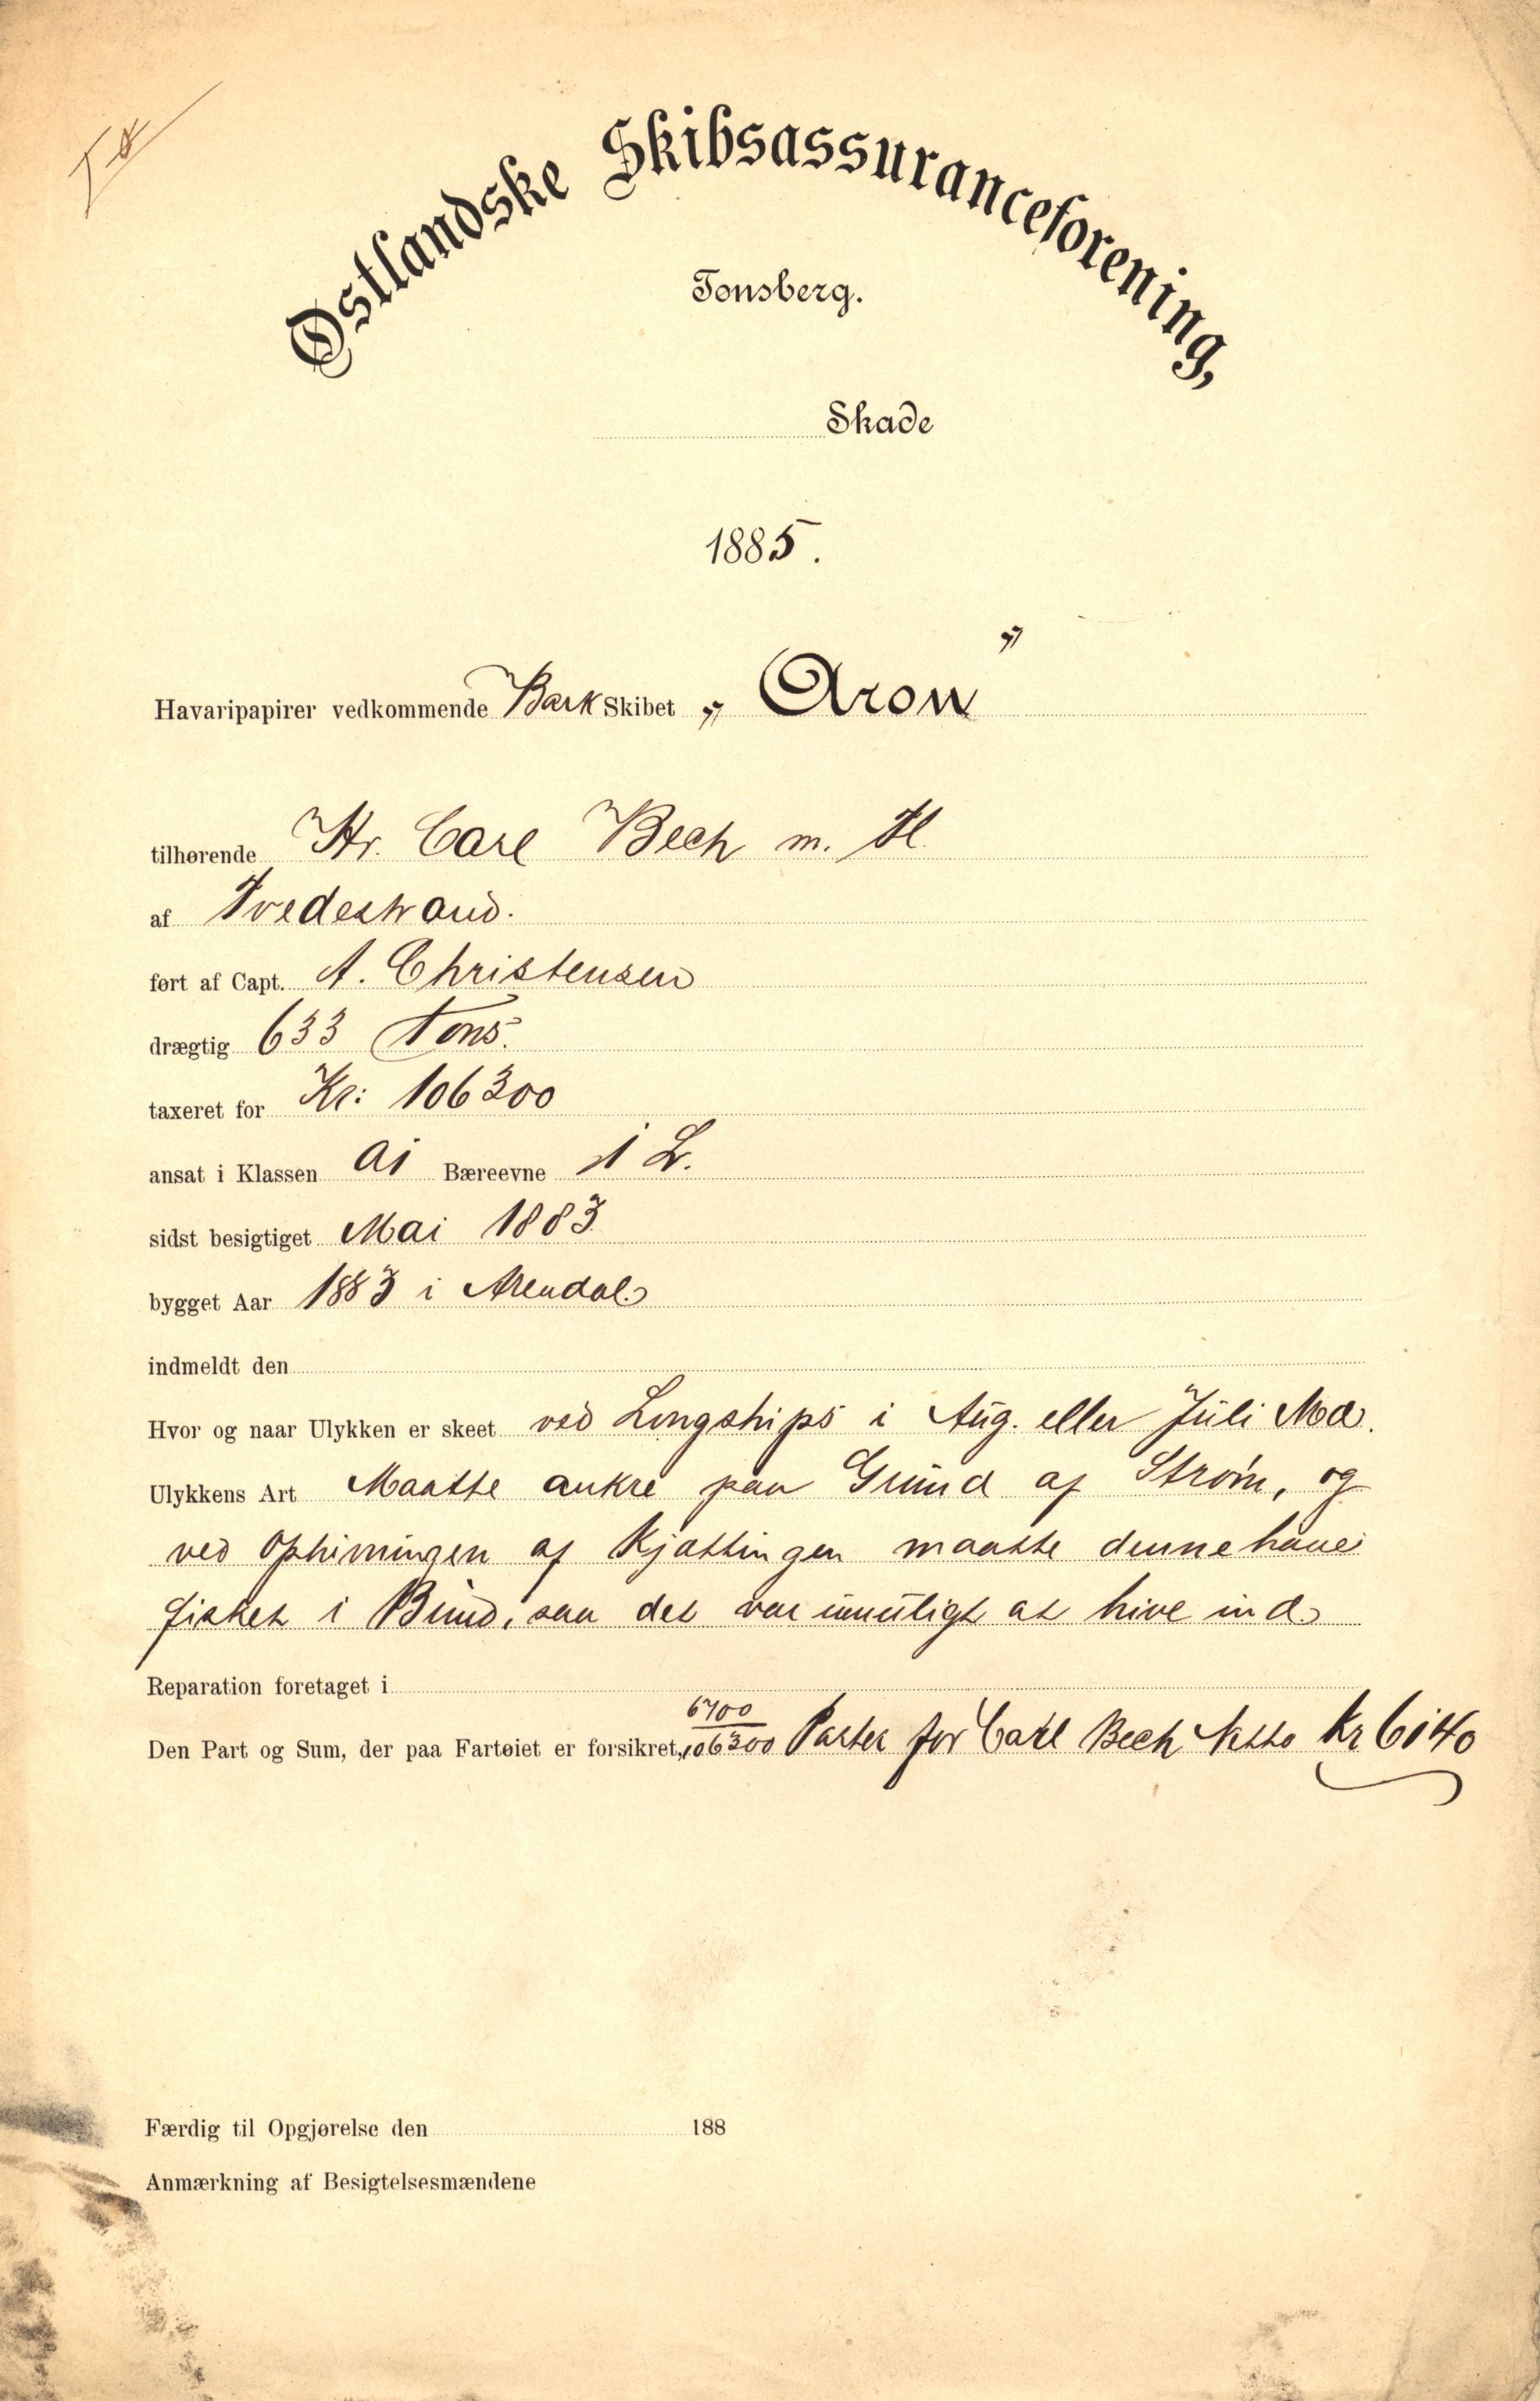 Østlandske Skibsassuranceforening,
Tønsberg.
Skade
1885.
Havaripapirer vedkommende Bark Skibet „Aron”
tilhørende Hr. Carl Bech m. Fl.
af Tvedestrand.
ført af Capt. A. Christensen
drægtig 633 Tons.
taxeret for Kr: 106300
ansat i Klassen A1 Bæreevne 1 L.
sidst besigtiget Mai 1883
bygget Aar 1883 i Arendal
indmeldt den
Hvor og naar Ulykken er skeet ved Longships i Aug. eller Juli Md.
Ulykkens Art Maatte ankre paa Grund af Strøm, og
ved Ophivningen af Kjættingen maatte denne have
fisket i Bund, saa det var umuligt at hive ind
Reparation foretaget i
Den Part og Sum, der paa Fartøiet er forsikret, 6700/106300 Parter for Carl Bech Netto Kr 6140
Færdig til Opgjørelse den 188
Anmærkning af Besigtelsesmændene